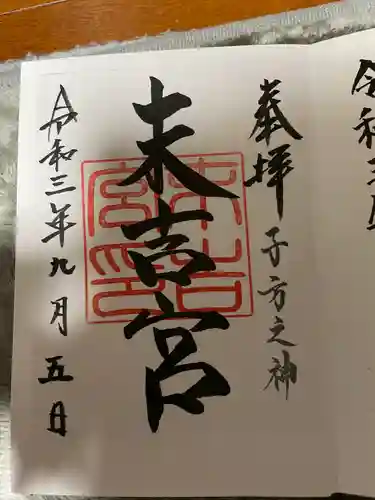 令和三
奉拝 子方之神
末吉宮
令和三年九月五日